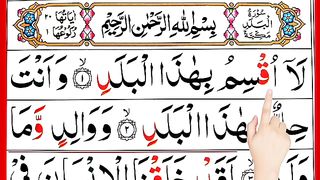 سُوْرَةُ الْبَلَدِ مَكِّيَّةٌ
بِسْمِ اللّٰهِ الرَّحْمٰنِ الرَّحِيْمِ
اٰيَاتُهَا ٢٠ رُكُوْعُهَا ١
لَآ اُقْسِمُ بِهٰذَا الْبَلَدِ ۙ﴿١﴾ وَاَنْتَ
حِلٌّۢ بِهٰذَا الْبَلَدِ ۙ﴿٢﴾ وَوَالِدٍ وَّمَا
وَلَدَ ۙ﴿٣﴾ لَقَدْ خَلَقْنَا الْاِنْسَانَ فِيْ